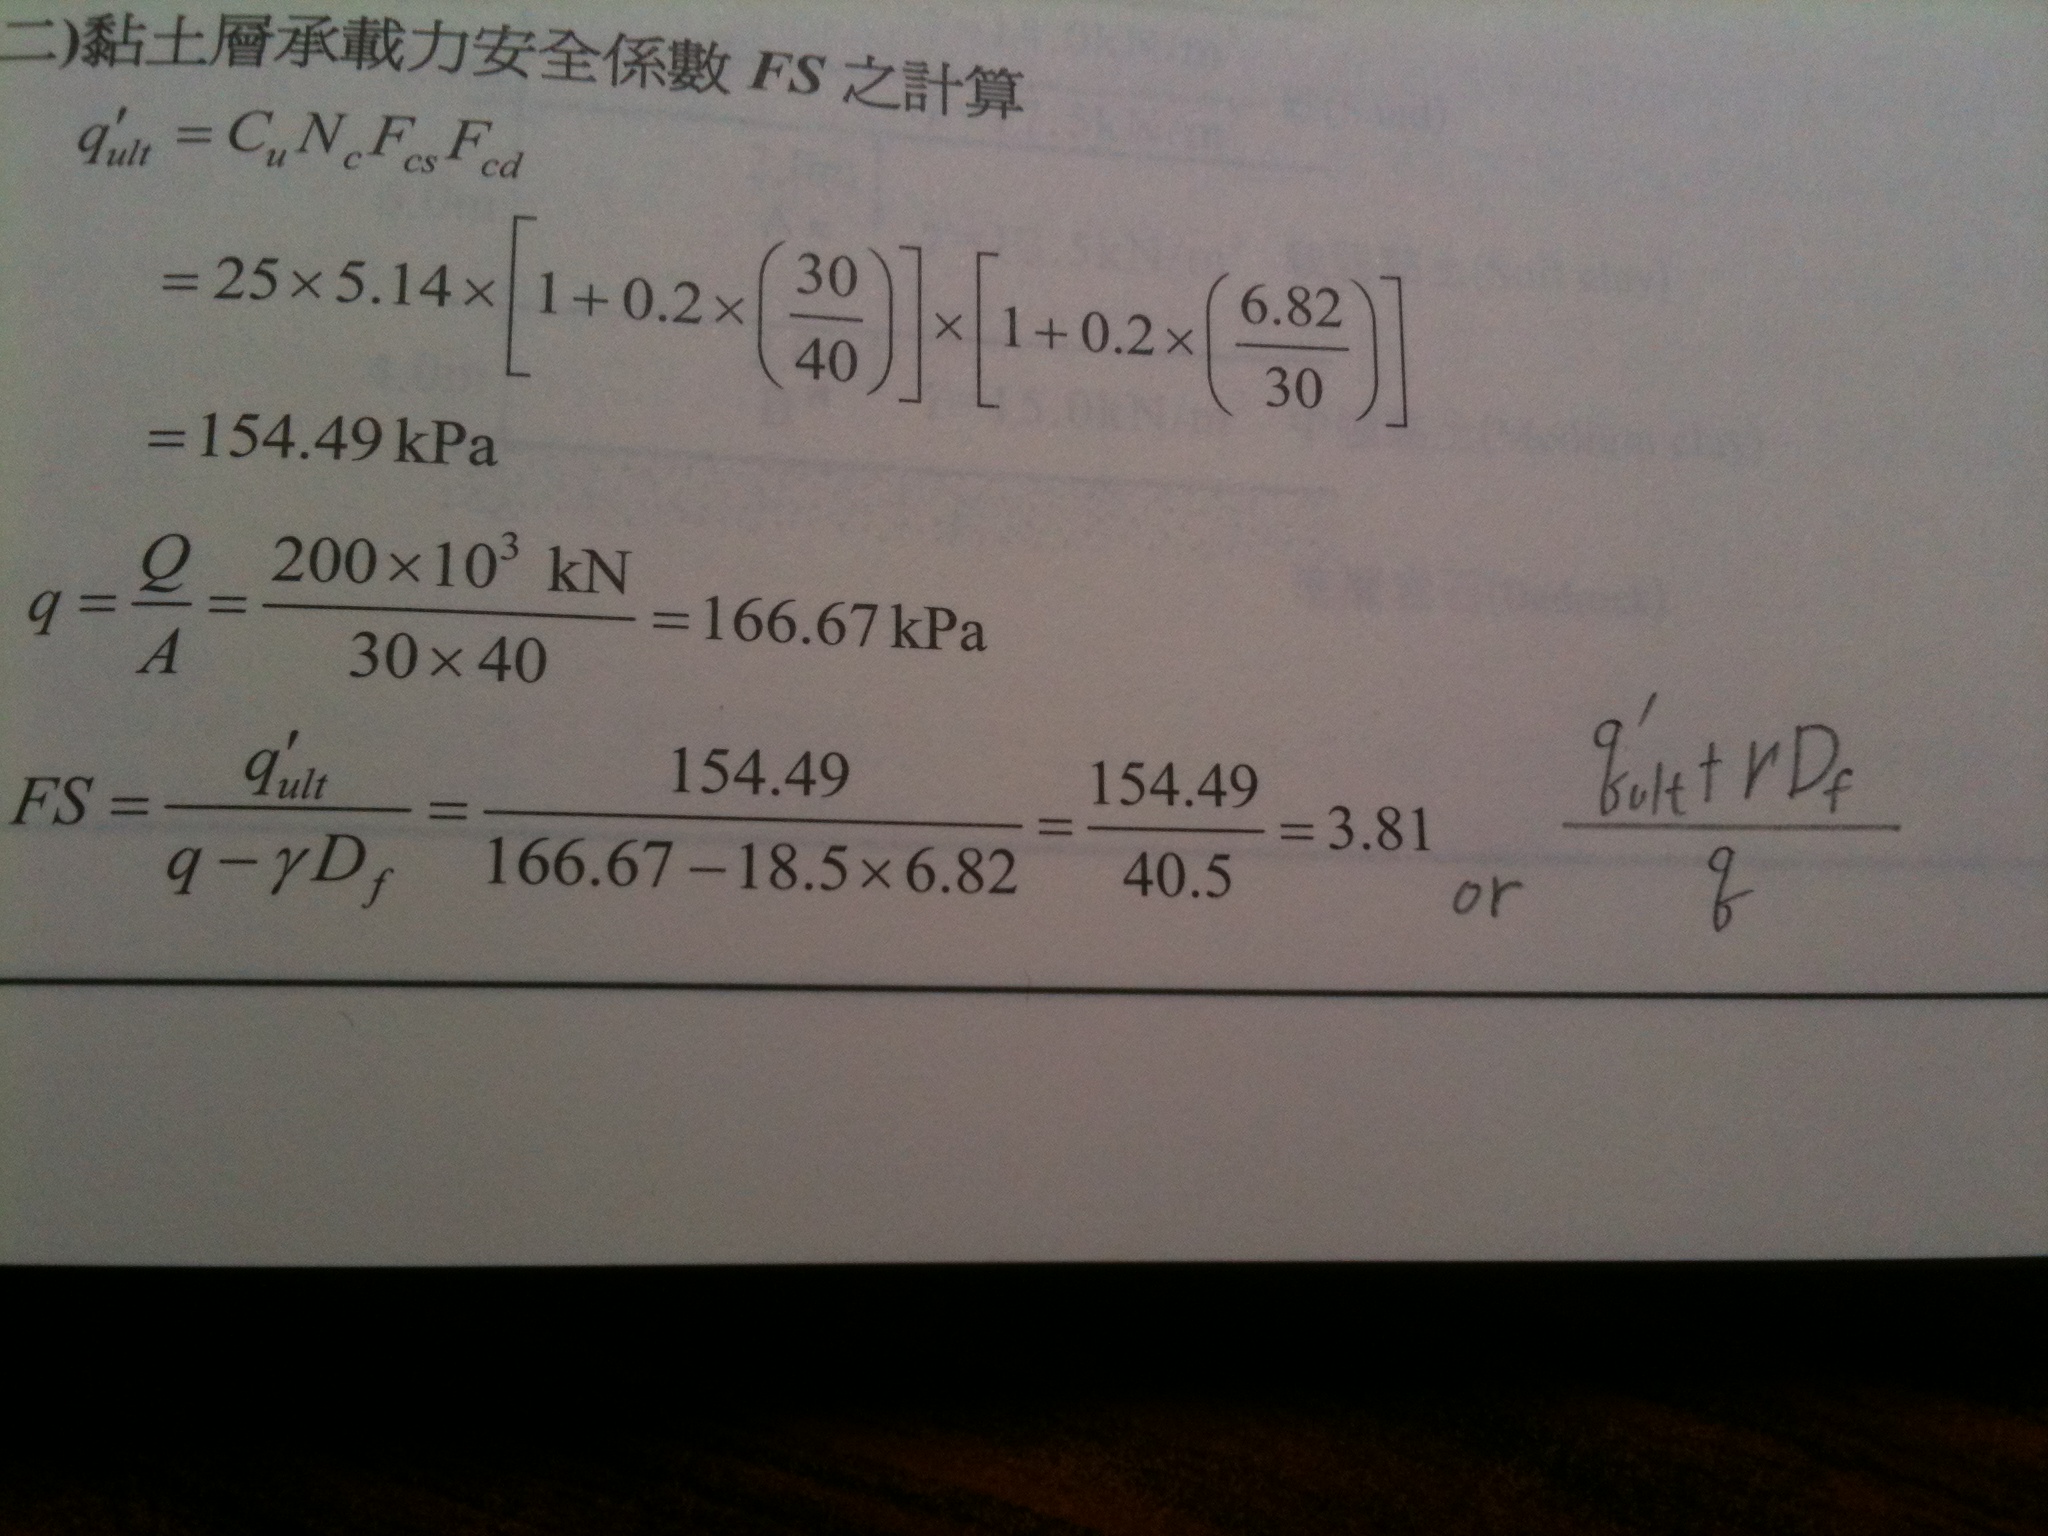 二)黏土層承載力安全係數 FS 之計算
q'ult = CuNcFcsFcd
= 25×5.14×[1+0.2×(30/40)]×[1+0.2×(6.82/30)]
=154.49 kPa
q = Q/A = 200×10³ kN/30×40 = 166.67 kPa
FS = q'ult/q−γDf = 154.49/166.67−18.5×6.82 = 154.49/40.5 = 3.81 or q'ult+rDf/q